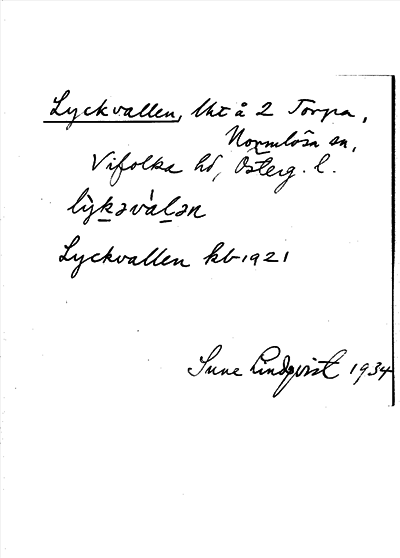 Lyckvallen, lht å 2 Torpa,
Normlösa sn,
Vifolka hd, Österg. l.
lỳkəvàlən
Lyckvallen kb 1921
Sune Lindqvist 1934